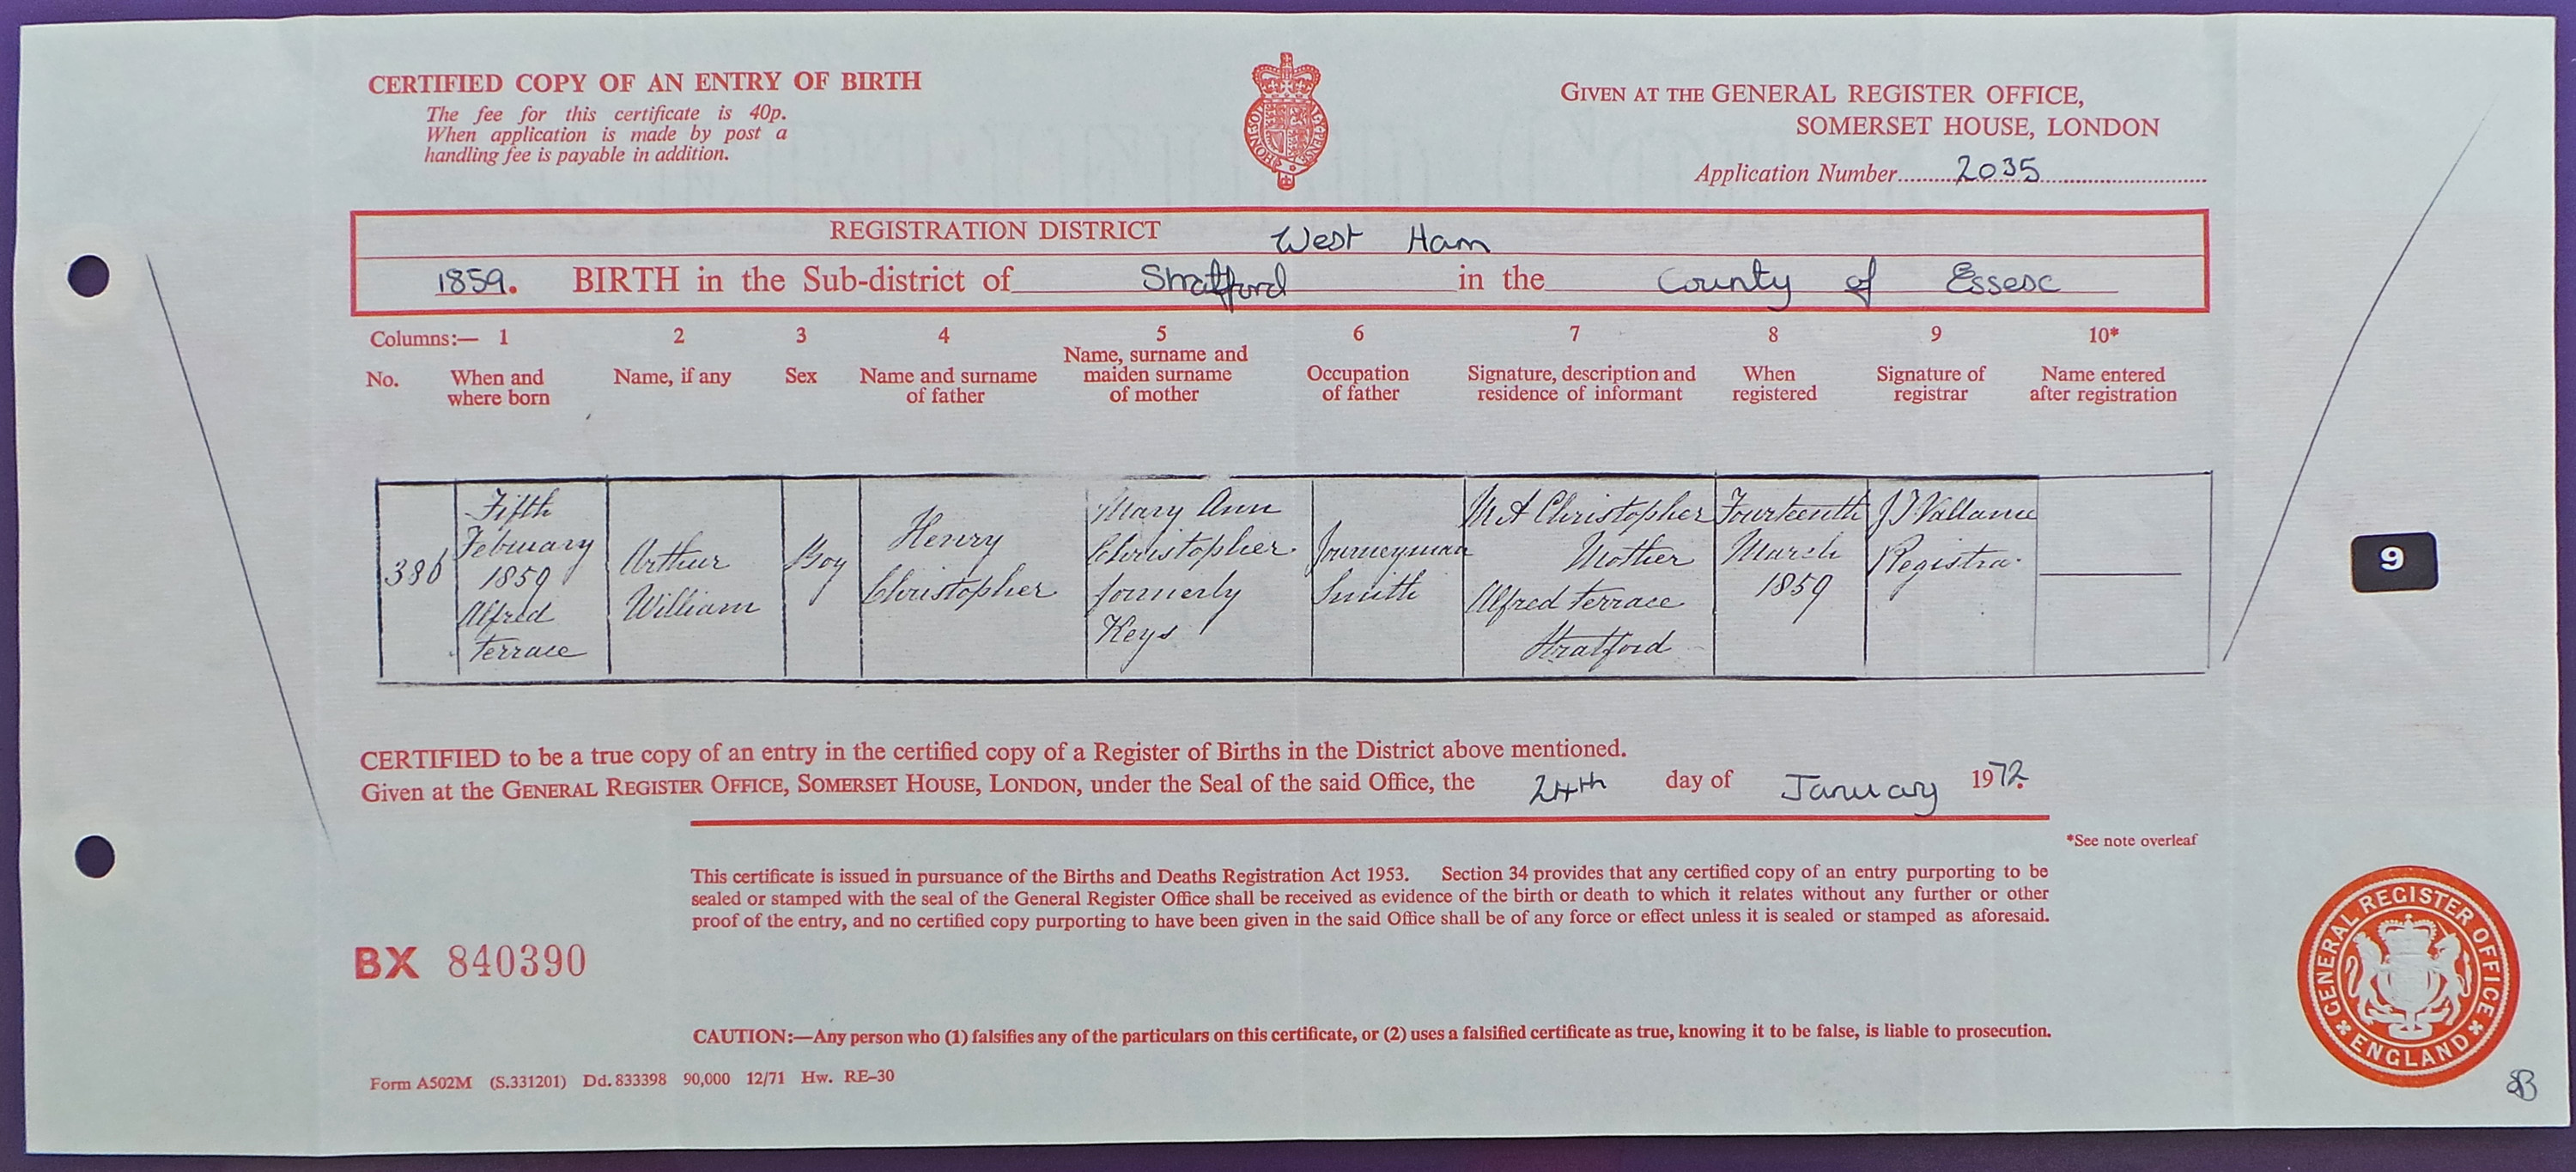 CERTIFIED COPY OF AN ENTRY OF BIRTH
The fee for this certificate is 40p.
When application is made by post a
handling fee is payable in addition.
GIVEN AT THE GENERAL REGISTER OFFICE,
SOMERSET HOUSE, LONDON
Application Number 2035
REGISTRATION DISTRICT West Ham
1859. BIRTH in the Sub-district of Stratford in the County of Essex
Columns:— 1 2 3 4 5 6 7 8 9 10*
No.
When and
where born
Name, if any
Sex
Name and surname
of father
Name, surname and
maiden surname
of mother
Occupation
of father
Signature, description and
residence of informant
When
registered
Signature of
registrar
Name entered
after registration
386
Fifth
February
1859
Alfred
Terrace
Arthur
William
Boy
Henry
Christopher
Mary Ann
Christopher
formerly
Keys
Journeyman
Smith
M A Christopher
Mother
Alfred Terrace
Stratford
Fourteenth
March
1859
J T Vallance
Registrar
9
CERTIFIED to be a true copy of an entry in the certified copy of a Register of Births in the District above mentioned.
Given at the GENERAL REGISTER OFFICE, SOMERSET HOUSE, LONDON, under the Seal of the said Office, the 24th day of January 1972.
*See note overleaf
This certificate is issued in pursuance of the Births and Deaths Registration Act 1953. Section 34 provides that any certified copy of an entry purporting to be
sealed or stamped with the seal of the General Register Office shall be received as evidence of the birth or death to which it relates without any further or other
proof of the entry, and no certified copy purporting to have been given in the said Office shall be of any force or effect unless it is sealed or stamped as aforesaid.
BX 840390
CAUTION:—Any person who (1) falsifies any of the particulars on this certificate, or (2) uses a falsified certificate as true, knowing it to be false, is liable to prosecution.
Form A502M (S.331201) Dd. 833398 90,000 12/71 Hw. RE-30
GENERAL REGISTER OFFICE
ENGLAND